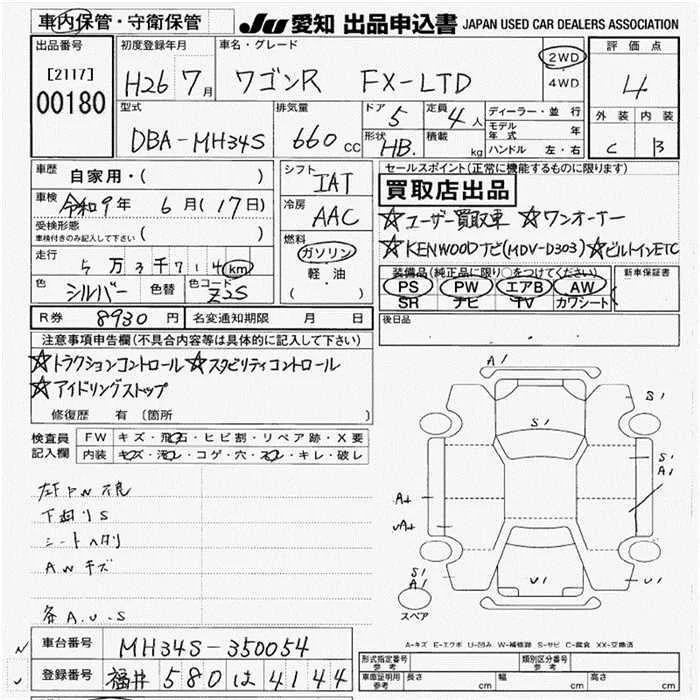 車内保管・守衛保管
JU 愛知 出品申込書 JAPAN USED CAR DEALERS ASSOCIATION
出品番号
[2117]
00180
初度登録年月
H26 7月
車名・グレード
ワゴンR FX-LTD
2WD
4WD
評価点
4
外装 内装
C B
型式
DBA-MH34S
排気量
660 CC
ドア 5
定員 4人
形状 HB.
積載 kg
ディーラー・並行
モデル年式 年
ハンドル 左・右
車歴 自家用・( )
車検 令和9年 6月(17日)
受検形態
車検付きのみ記入して下さい ( )
走行 5万3千714km
色 シルバー 色替 色コード Z2S
シフト IAT
冷房 AAC
燃料
ガソリン
軽油
( )
セールスポイント(正常に機能するものに限ります)
買取店出品
☆ユーザー買取車 ☆ワンオーナー
☆KENWOODナビ(MDV-D303)☆ビルトインETC
装備品(純正品に限り○をつけてください)
PS PW エアB AW
SR ナビ TV カワシート
新車保証書
R券 8930円 名変通知期限 月 日
後日品
注意事項申告欄(不具合内容等は具体的に記入して下さい)
☆トラクションコントロール☆スタビリティコントロール
☆アイドリングストップ
修復歴 有〔箇所 〕
検査員記入欄
FW キズ・飛石・ヒビ割・リペア跡・X要
内装 キズ・汚れ・コゲ・穴・スレ・キレ・破レ
下廻りS
AWキズ
各A.U.S
A1
S1
S1
S1
A1
A+
A+
S1
A1
U1
U1
スペア
A-キズ E-エクボ U-凹み W-補修跡 S-サビ C-腐食 XX-交換済
車台番号 MH34S-350054
登録番号 福井580は4144
形式指定番号 参考
類別区分番号 参考
車庫証明用 参考 長さ cm 幅 cm 高さ cm